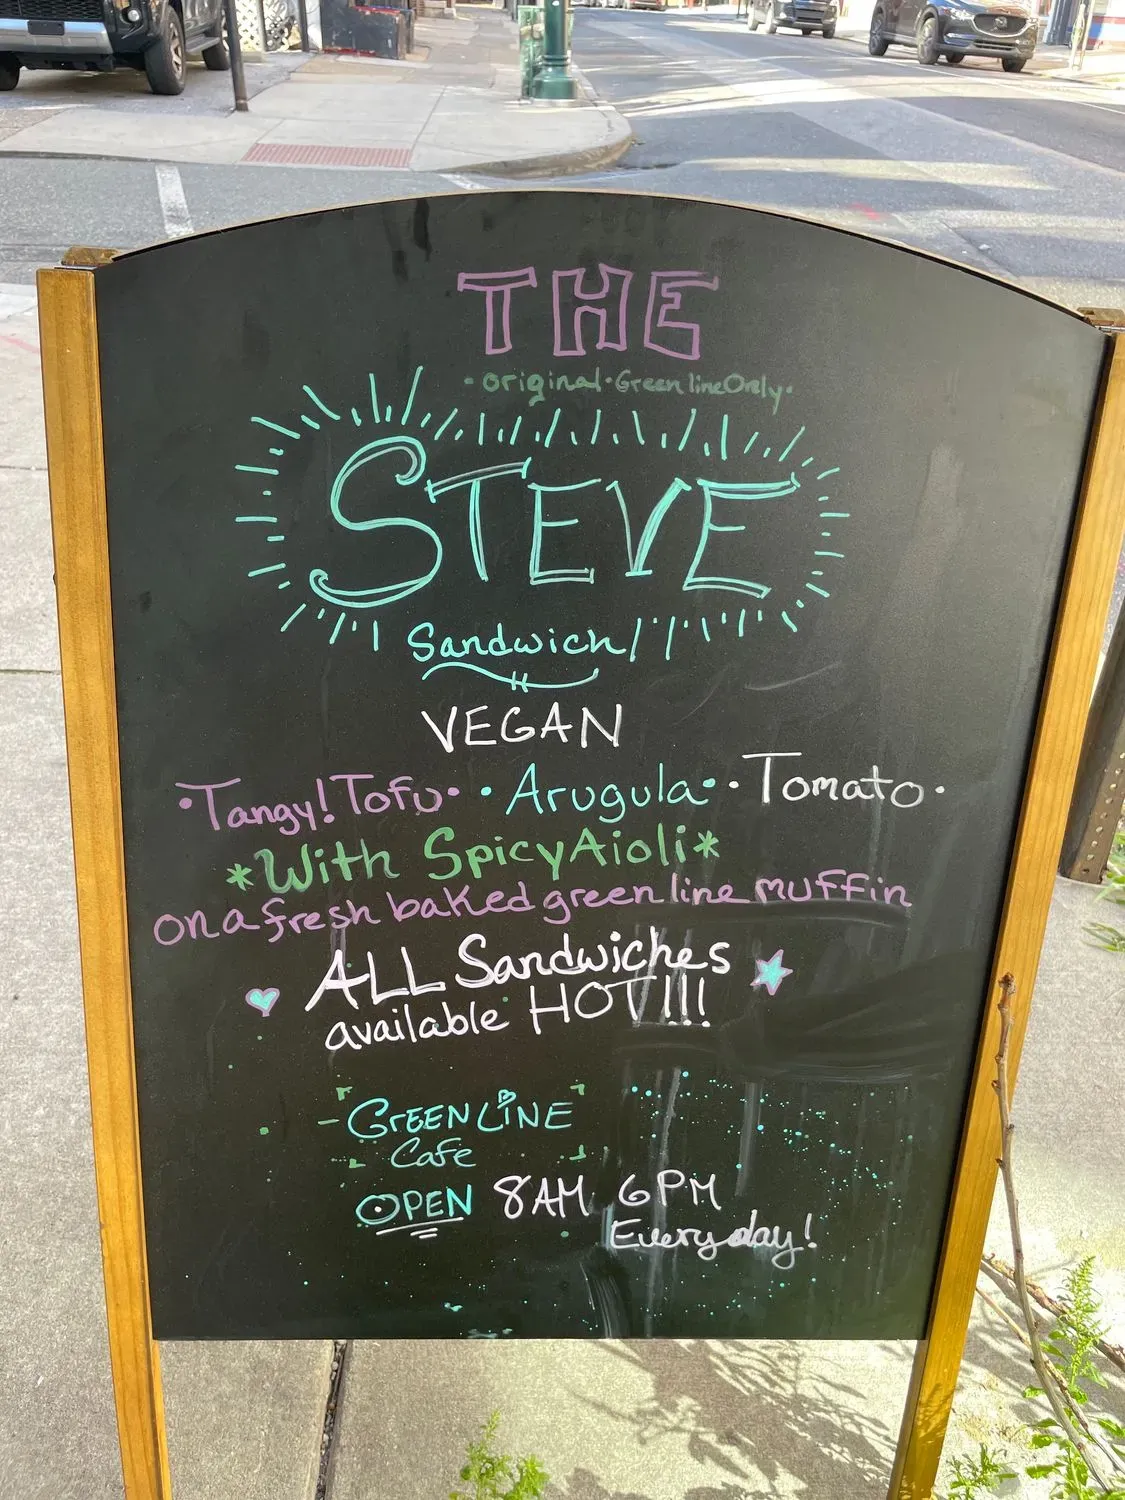 THE
• original • Green line Only •
STEVE
Sandwich
VEGAN
• Tangy! Tofu • • Arugula • • Tomato •
*With Spicy Aioli*
on a fresh baked green line muffin
ALL Sandwiches
available HOT!!!
GREEN LINE
Cafe
OPEN 8AM 6PM
Everyday!